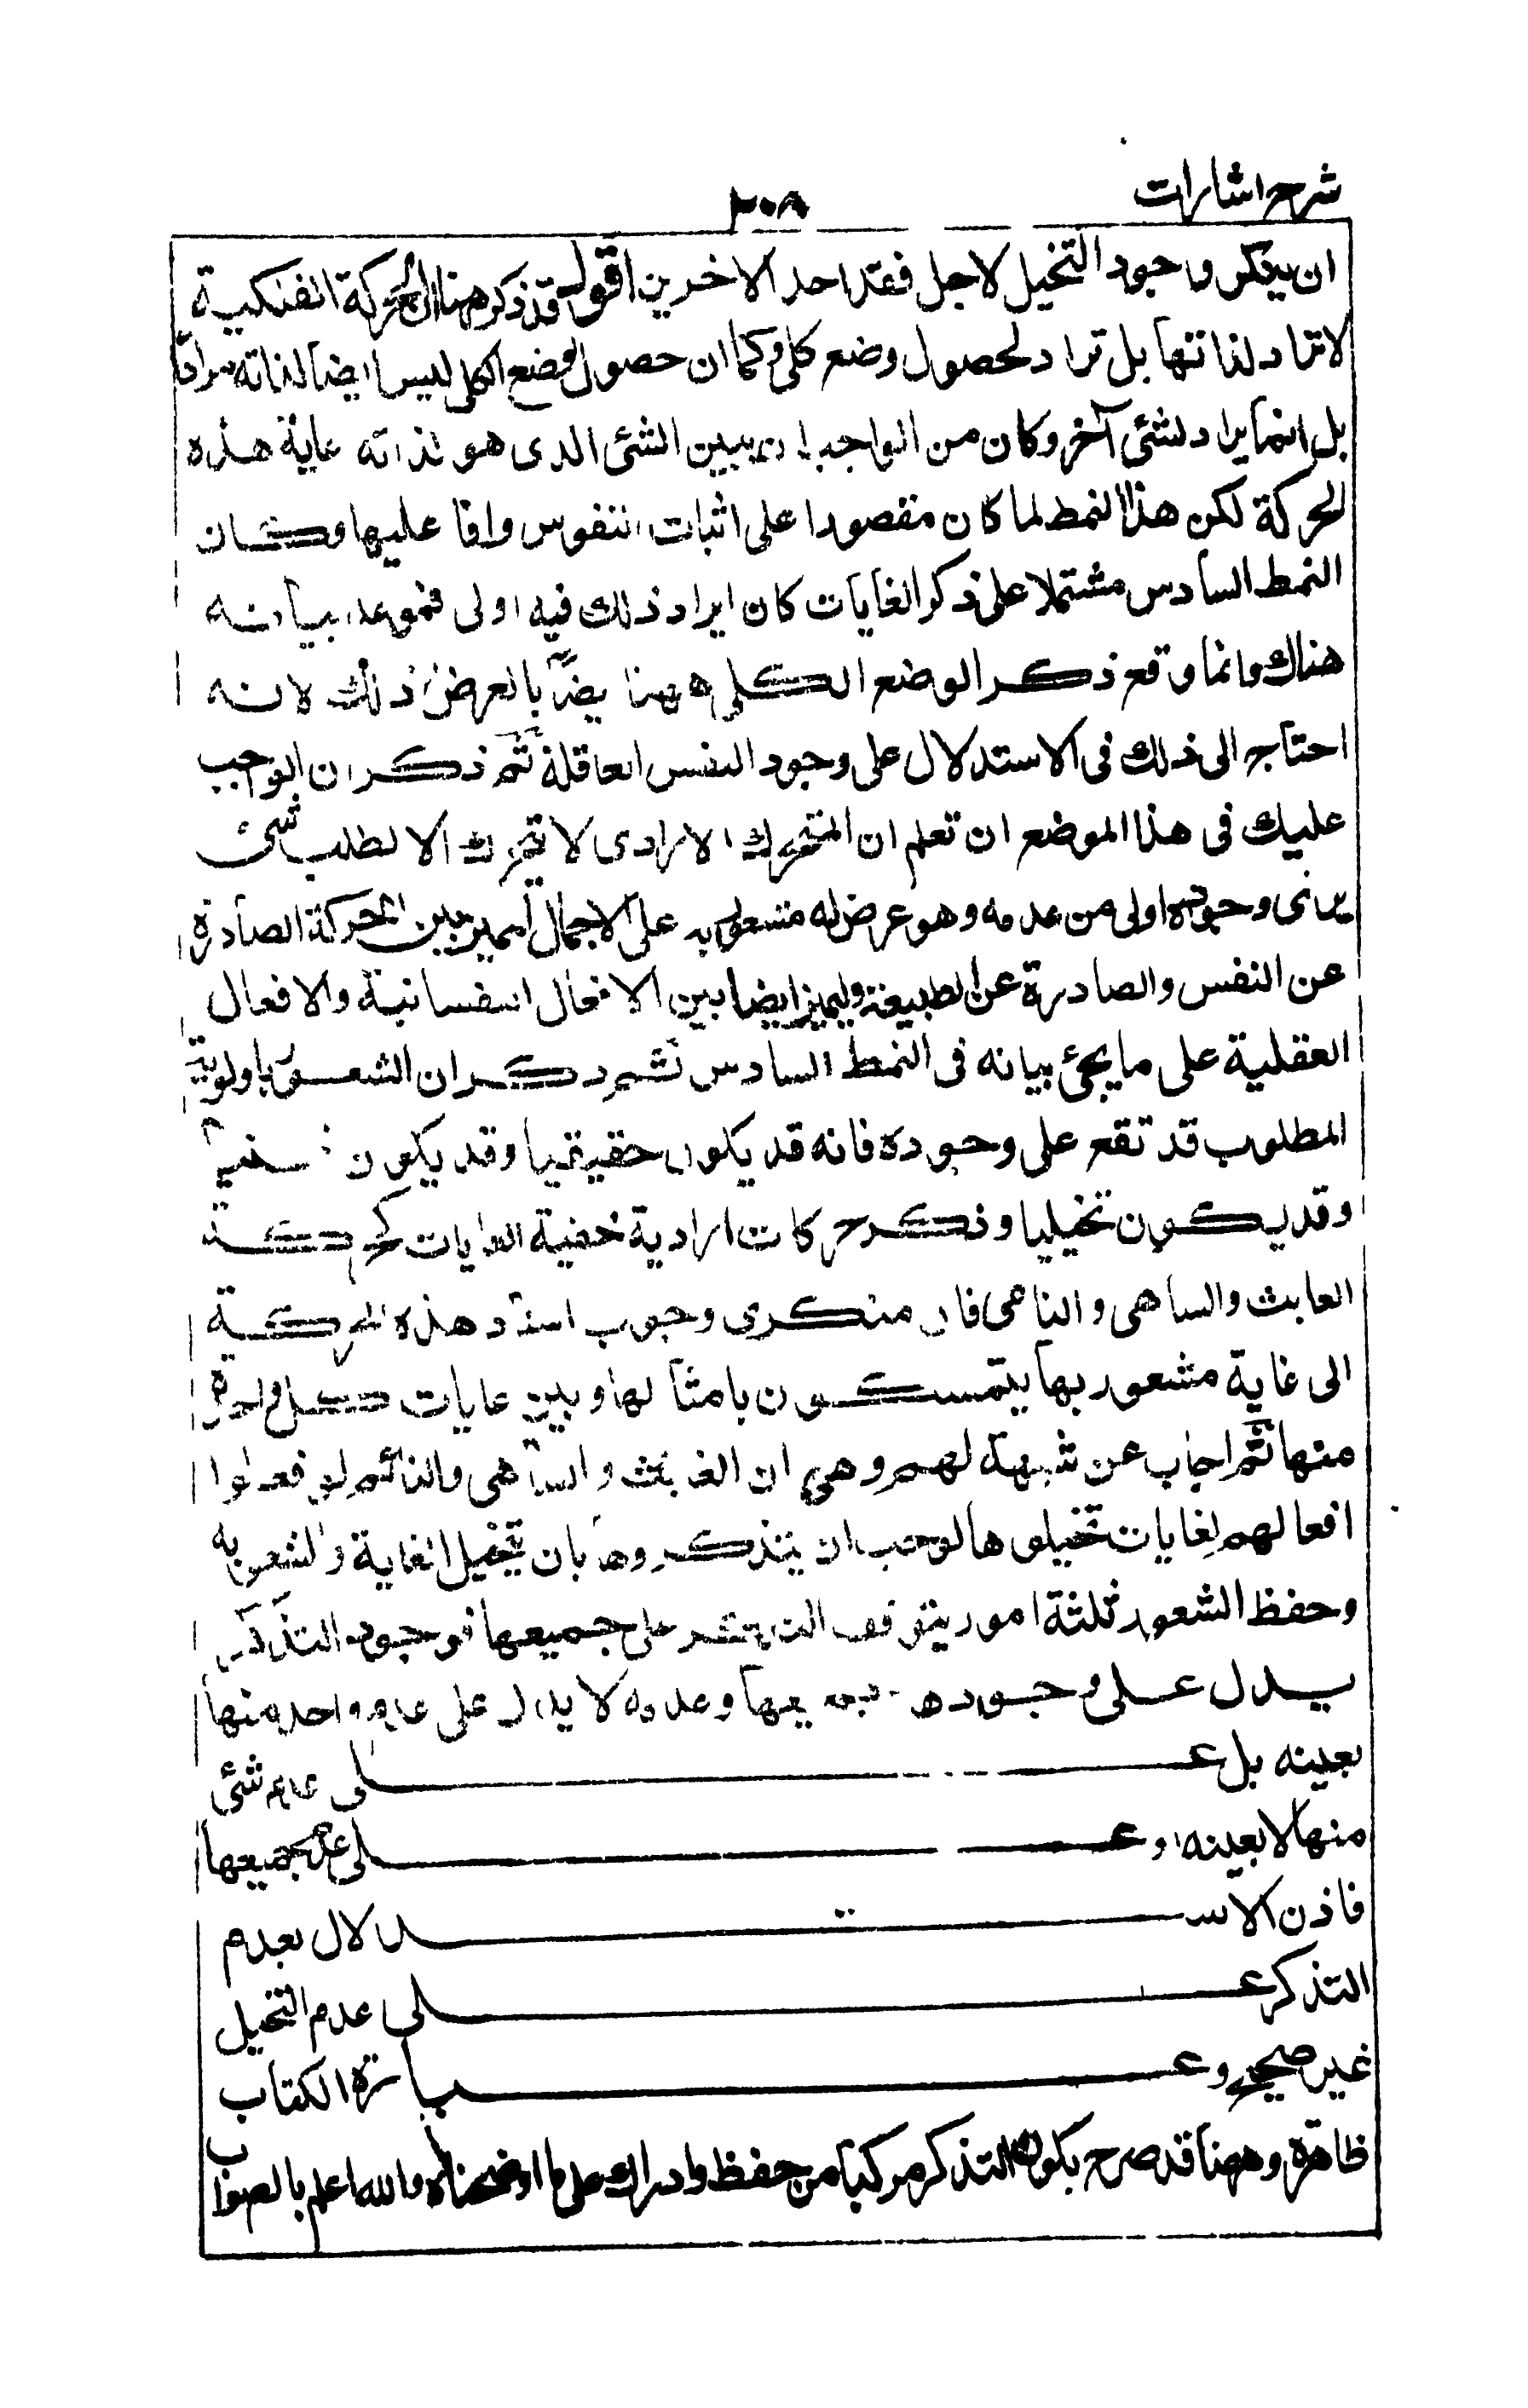 شرح اشارات
٢٠٨
ان ينكر وجود التخيل لاجل فقد احد الاخرين اقول قد ذكر ههنا ان الحركة الفلكية
لا تراد لذاتها بل تراد لحصول وضع كلى وكما ان حصول الوضع الكلى ليس ايضا لذاته مرادا
بل انما يراد لشئ آخر وكان من الواجب ان يبين الشئ الذى هو لذاته غاية هذه
الحركة لكن هذا النمط لما كان مقصورا على اثبات النفوس وافا عليها وكان
النمط السادس مشتملا على ذكر الغايات كان ايراد ذلك فيه اولى فموعد بيانه
هناك وانما وقع ذكر الوضع الكلى ههنا ايضا بالعرض ذلك لانه
احتاج الى ذلك فى الاستدلال على وجود النفس العاقلة ثم ذكر ان الواجب
عليك فى هذا الموضع ان تعلم ان المتحرك الارادى لا يتحرك الا لطلب شئ
يرى وجوده اولى من عدمه وهو غرض له مشعور به على الاجمال ليميز بين الحركة الصادرة
عن النفس والصادرة عن الطبيعة وليميز ايضا بين الافعال النفسانية والافعال
العقلية على ما يجئ بيانه فى النمط السادس ثم ذكر ان الشعور باولوية
المطلوب قد تقع على وجوده فانه قد يكون حقيقيا وقد يكون ظنيا
وقد يكون تخيليا وذكر حركات ارادية خفية الغايات كحركة
العابث والساهى والنائم فان منكرى وجوب اسناد هذه الحركة
الى غاية مشعور بها يتمسكون بامثالها وبين غايات كل واحدة
منها ثم اجاب عن شبهة لهم وهى ان العابث والساهى والنائم لو فعلوا
افعالهم لغايات تخيلوها لوجب ان يتذكروها بان تخيل الغاية والشعور به
وحفظ الشعور ثلثة امور يتوقف التذكر على جميعها فوجود التذكر
يدل على وجودها جميعها وعدمه لا يدل على عدم واحد منها
بعينه بل على عدم شئ
منها لا بعينه او على عدم جميعها
فاذن الاستدلال بعدم
التذكر على عدم التخيل
غير صحيح وعبارة الكتاب
ظاهرة وههنا قد صرح بكون التذكر مركبا من حفظ وادراك على ما اوضحناه والله اعلم بالصواب